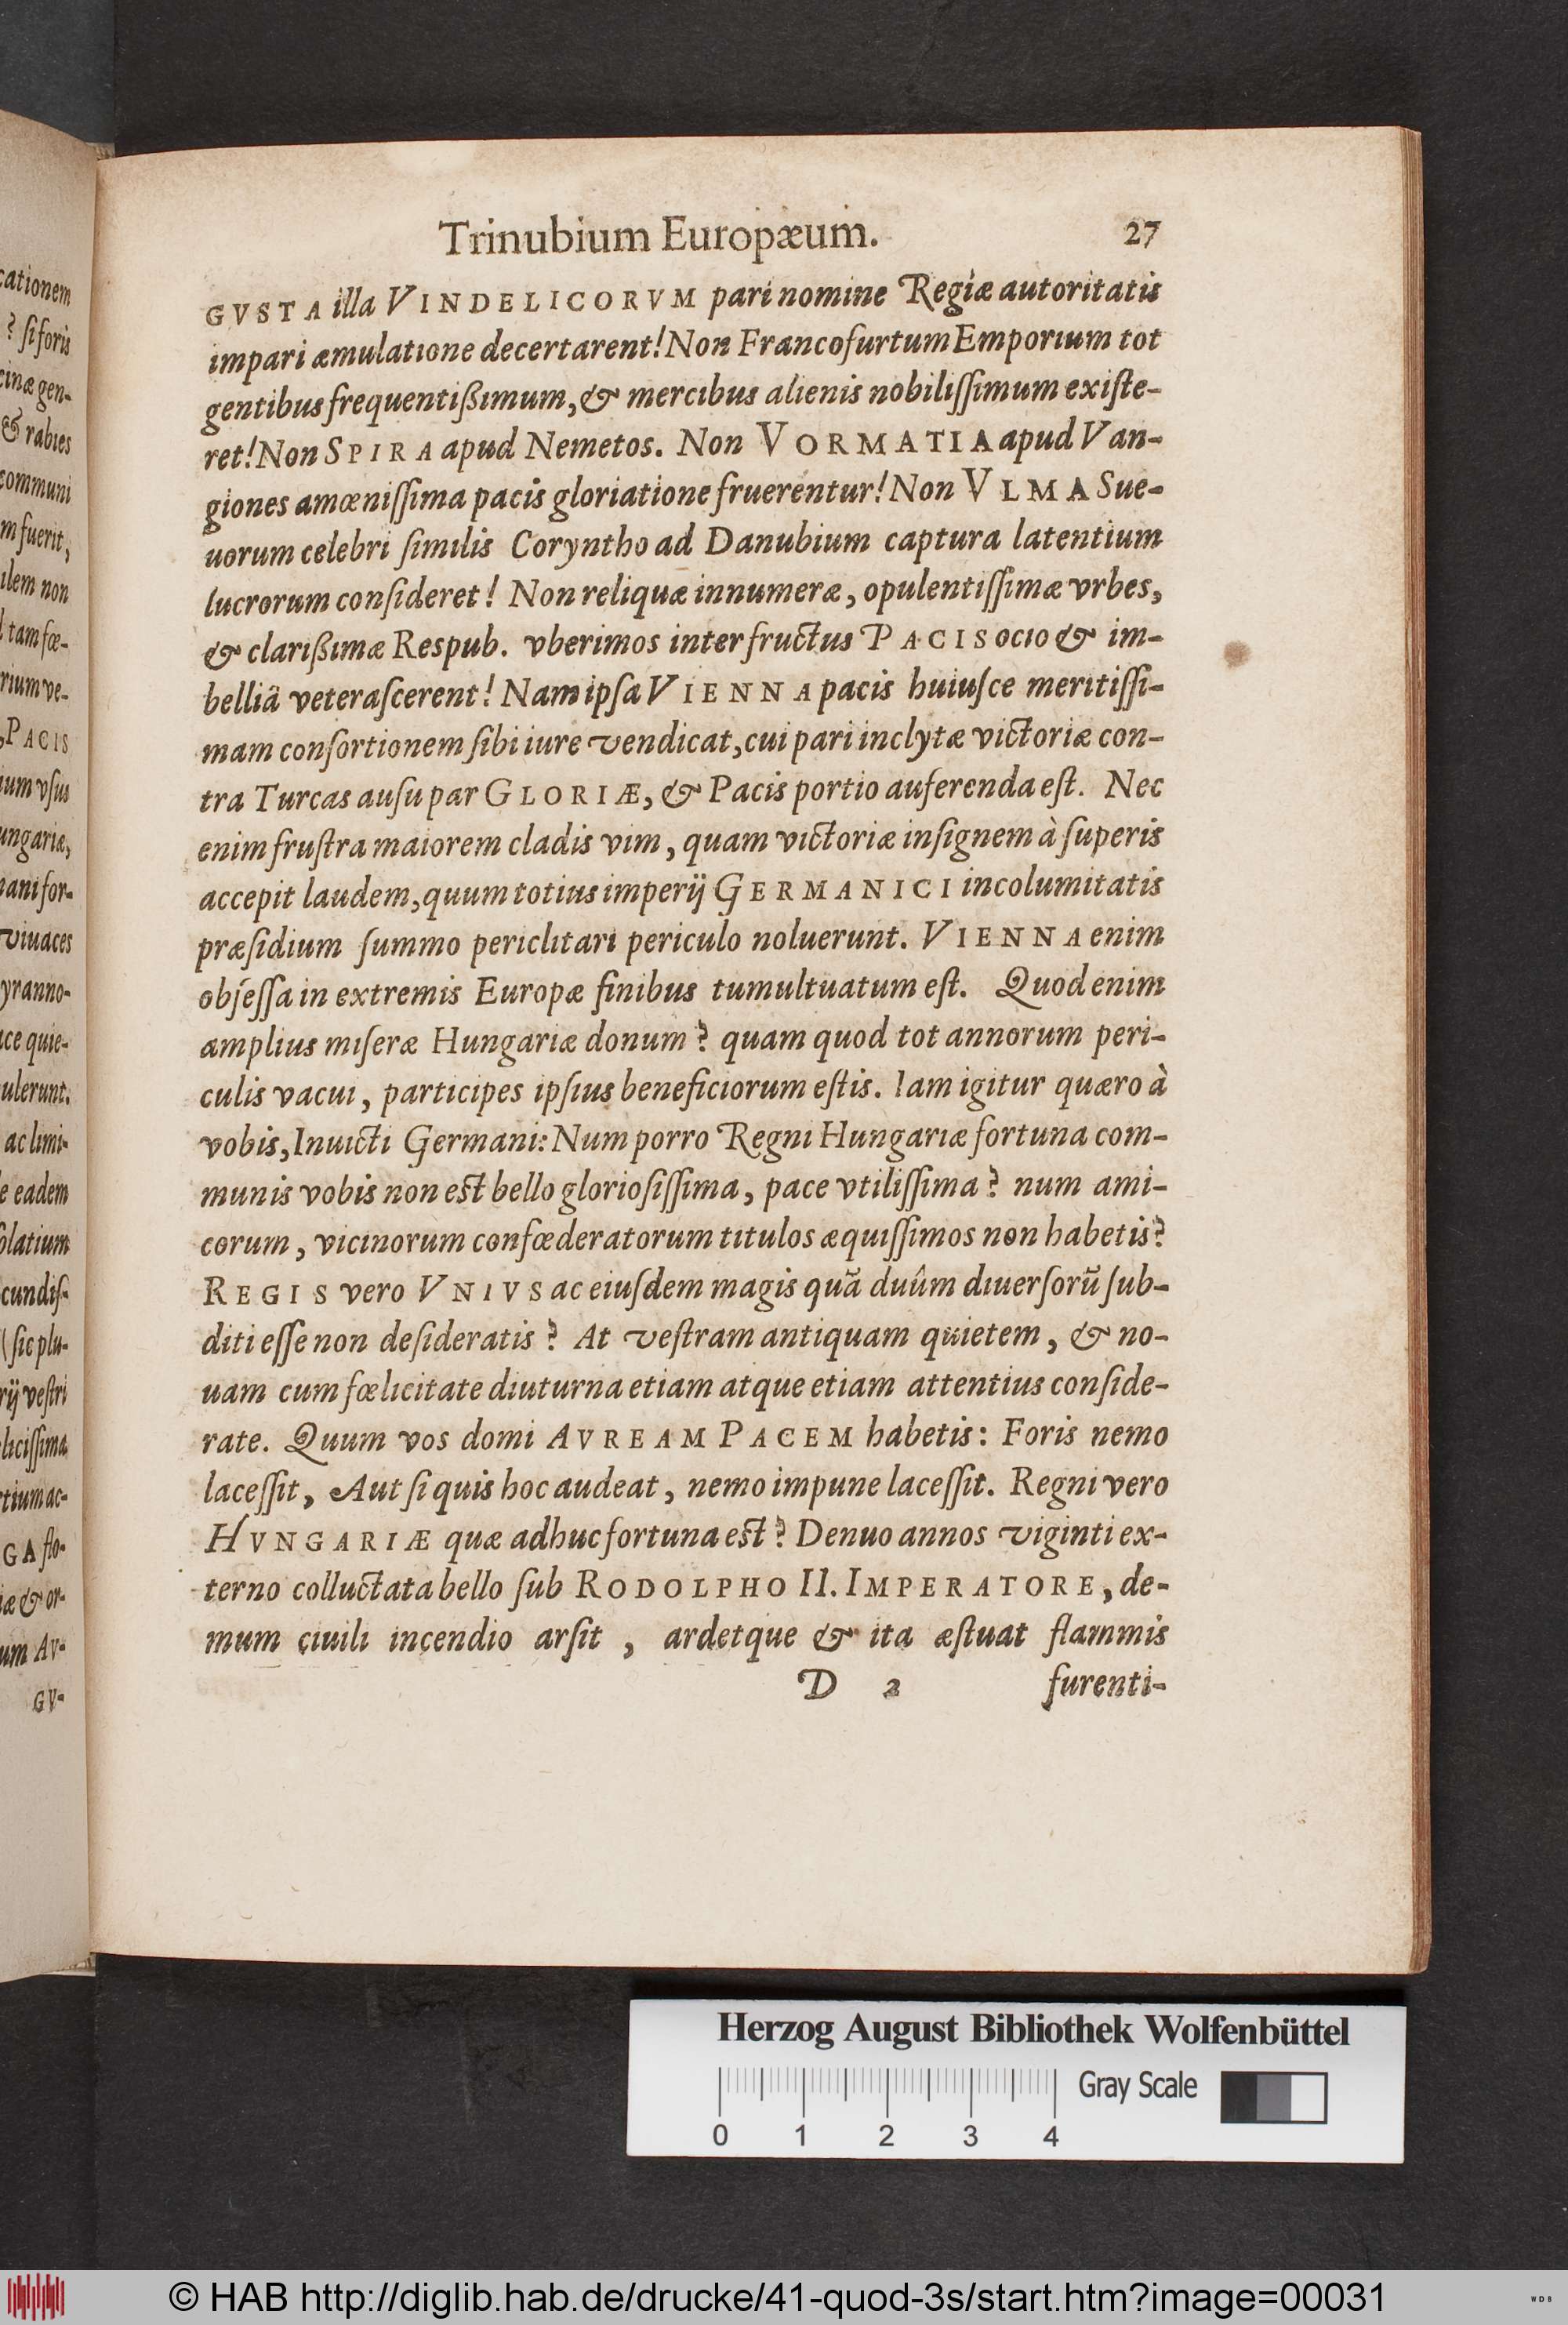 cationem
? ſi foris
cinæ gen-
& rabies
communi
m fuerit,
ilem non
tam fœ-
rium ve-
PACIS
ium vſus
ungariæ,
ani for-
viuaces
yranno-
ce quie-
ulerunt.
ac limi-
e eadem
olatium
cundiſ-
(ſic plu-
rij veſtri
liciſſima
tium ac-
GA flo-
iæ & or-
um AV-
GV-
Trinubium Europæum. 27
GVSTA illa VINDELICORVM pari nomine Regiæ autoritatis
impari æmulatione decertarent! Non Francofurtum Emporium tot
gentibus frequentißimum, & mercibus alienis nobiliſſimum exiſte-
ret! Non SPIRA apud Nemetos. Non VORMATIA apud Van-
giones amœniſſima pacis gloriatione fruerentur! Non VLMA Sue-
uorum celebri ſimilis Coryntho ad Danubium captura latentium
lucrorum conſideret! Non reliquæ innumeræ, opulentiſſimæ vrbes,
& clarißimæ Respub. vberimos inter fructus PACIS ocio & im-
belliã veteraſcerent! Nam ipſa VIENNA pacis huiuſce meritiſſi-
mam conſortionem ſibi iure vendicat, cui pari inclytæ victoriæ con-
tra Turcas auſu par GLORIÆ, & Pacis portio auferenda eſt. Nec
enim fruſtra maiorem cladis vim, quam victoriæ inſignem à ſuperis
accepit laudem, quum totius imperij GERMANICI incolumitatis
præſidium ſummo periclitari periculo noluerunt. VIENNA enim
obſeſſa in extremis Europæ finibus tumultuatum eſt. Quod enim
amplius miſeræ Hungariæ donum? quam quod tot annorum peri-
culis vacui, participes ipſius beneficiorum eſtis. Iam igitur quæro à
vobis, Inuicti Germani: Num porro Regni Hungariæ fortuna com-
munis vobis non est bello glorioſiſſima, pace vtiliſſima? num ami-
corum, vicinorum confœderatorum titulos æquiſſimos non habetis?
REGIS vero VNIVS ac eiuſdem magis quã duûm diuerſorũ ſub-
diti eſſe non deſideratis? At veſtram antiquam quietem, & no-
uam cum fœlicitate diuturna etiam atque etiam attentius conſide-
rate. Quum vos domi AVREAM PACEM habetis: Foris nemo
laceſſit, Aut ſi quis hoc audeat, nemo impune laceſſit. Regni vero
HVNGARIÆ quæ adhuc fortuna est? Denuo annos viginti ex-
terno colluctata bello ſub RODOLPHO II. IMPERATORE, de-
mum ciuili incendio arſit, ardetque & ita æſtuat flammis
D 2 furenti-
Herzog August Bibliothek Wolfenbüttel
Gray Scale
0 1 2 3 4
© HAB http://diglib.hab.de/drucke/41-quod-3s/start.htm?image=00031
WDB